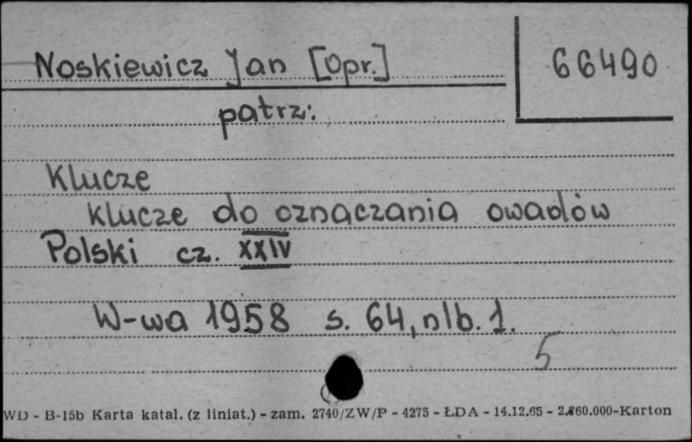 Noskiewicz Jan [Opr.]
66490
patrz:
Klucze
klucze do oznaczania owadów
Polski cz. XXIV
W-wa 1958 s. 64, nlb. 1.
5
WD - B-15b Karta katal. (z liniat.) - zam. 2740/ZW/P - 4275 - ŁDA - 14.12.65 - 2.860.000-Karton